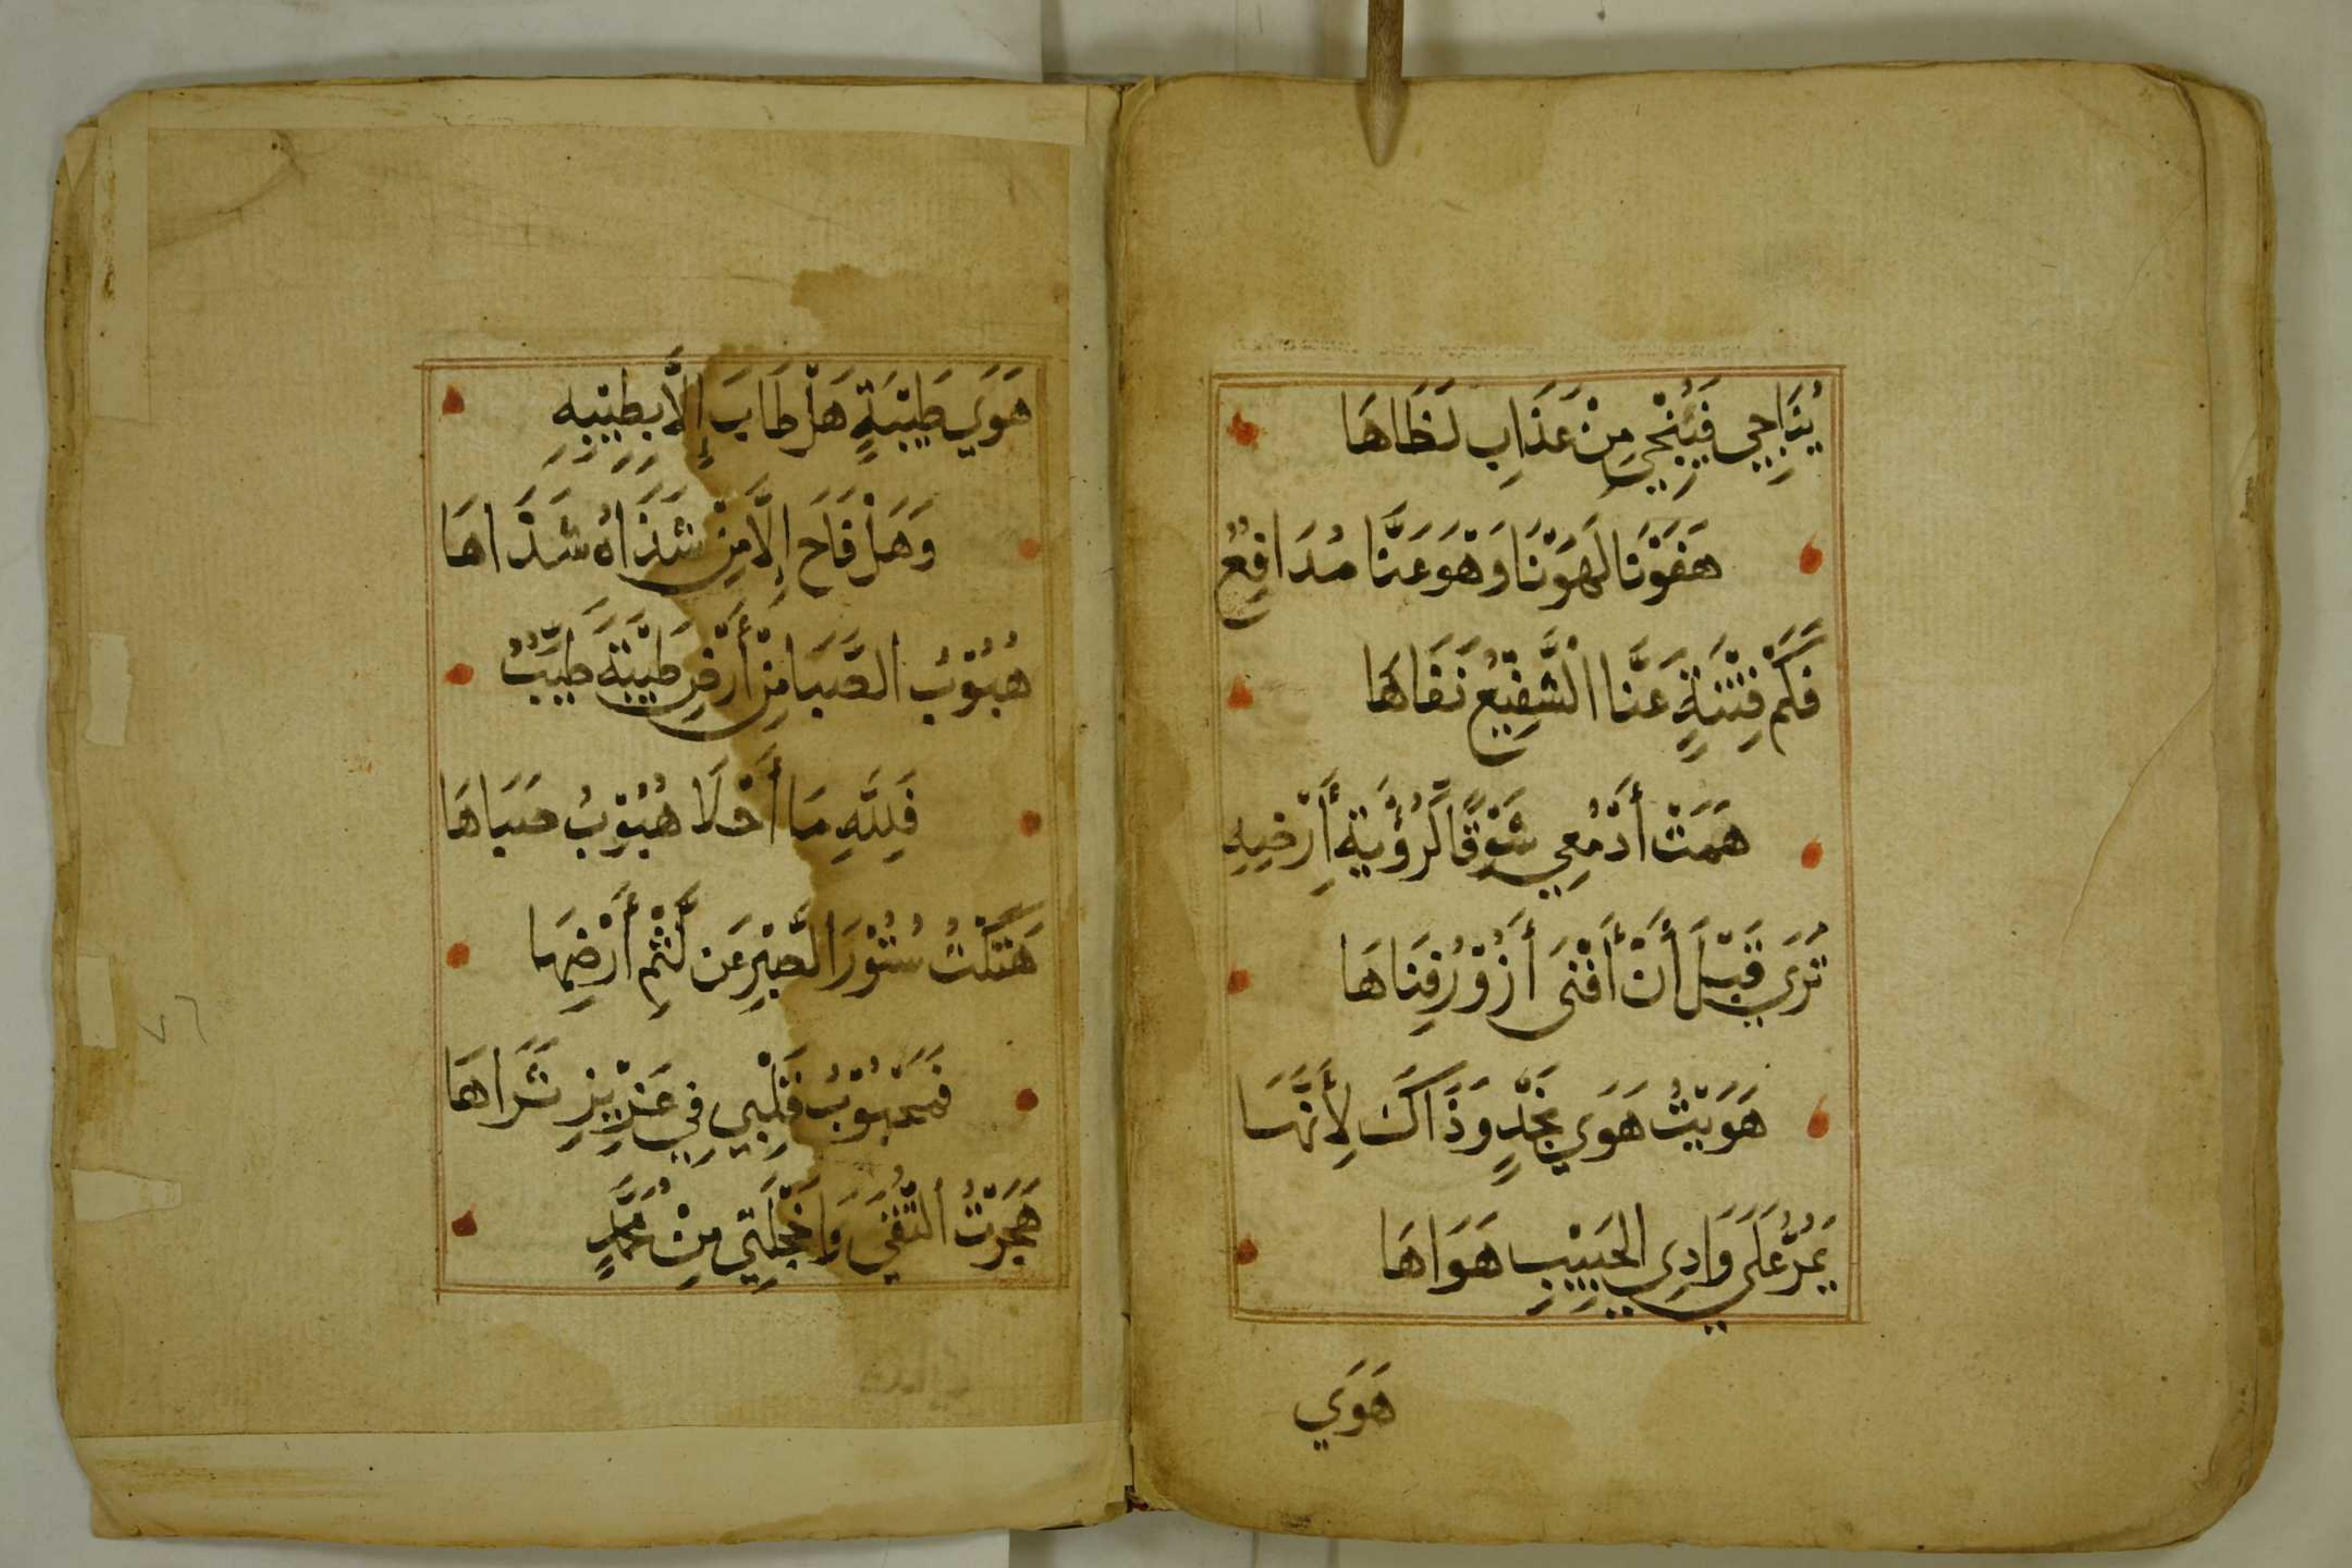 يُنَاجِي فَيُنْجِي مِنْ عَذَابِ لَظَاهَا
هَفَوْنَا لَهَوْنَا وَهْوَ عَنَّا مُدَافِعٌ
فَكَمْ فِتْنَةٍ عَنَّا الْشَّفِيْعُ نَفَاهَا
هَمَتْ أَدْمُعِي شَوْقًا لِّرُؤْيَةِ أَرْضِهِ
تُرَي قَبْلَ أَنْ أَفْنَى أَزُوْرُ فِنَاهَا
هَوَيْتُ هَوَي نَجْدٍ وَذَاكَ لِأَنَّهَا
يَمُرُّ عَلَي وَادِي الحَبِيْبِ هَوَاهَا
هَوَي
هَوَي طَيْبَةٍ هَلْ طَابَ إِلَّا بِطِيْبِهِ
وَهَلْ فَاحَ إِلَّا مِنْ شَذَاهُ شَذَاهَا
هُبُوْبُ الصَّبَا مِنْ أَرْضِ طَيْبَةَ طَيِّبٌ
فَلِلَّهِ مَا أَحْلَا هُبُوْبُ صَبَاهَا
هَتَكْتُ سُتُوْرَ الصَّبْرِ عَن لَّثْمِ أَرْضِهَا
فَمَحْبُوْبُ قَلْبِي فِي عَزِيْزِ ثَرَاهَا
هَجَرْتُ التُّقَي وَاخَجْلَتِي مِنْ مُحَمَّدٍ